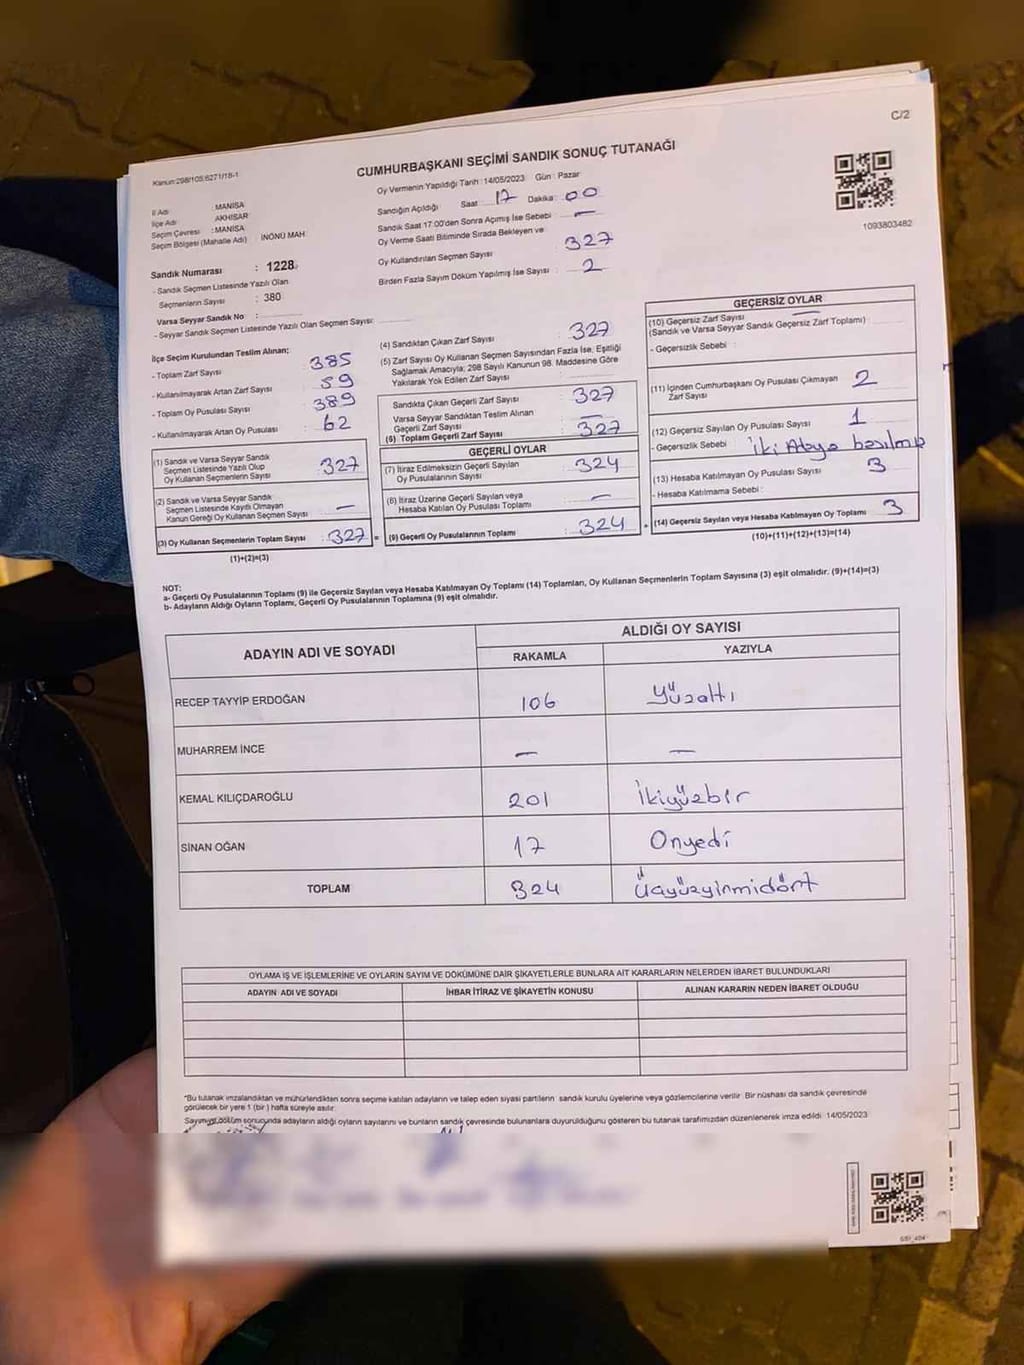 C/2
Kanun:298/105;6271/18-1
CUMHURBAŞKANI SEÇİMİ SANDIK SONUÇ TUTANAĞI
Oy Vermenin Yapıldığı Tarih : 14/05/2023 Gün : Pazar
1093803482
İl Adı : MANİSA
İlçe Adı : AKHİSAR
Seçim Çevresi : MANİSA
Seçim Bölgesi (Mahalle Adı) İNÖNÜ MAH
Sandık Numarası : 1228
- Sandık Seçmen Listesinde Yazılı Olan
Seçmenlerin Sayısı : 380
Varsa Seyyar Sandık No :
- Seyyar Sandık Seçmen Listesinde Yazılı Olan Seçmen Sayısı:
Sandığın Açıldığı Saat 17 Dakika : 00
Sandık Saat 17:00'den Sonra Açımış İse Sebebi : —
Oy Verme Saati Bitiminde Sırada Bekleyen ve
Oy Kullandırılan Seçmen Sayısı : 327
Birden Fazla Sayım Döküm Yapılmış İse Sayısı : 2
İlçe Seçim Kurulundan Teslim Alınan;
- Toplam Zarf Sayısı : 385
- Kullanılmayarak Artan Zarf Sayısı : 59
- Toplam Oy Pusulası Sayısı : 389
- Kullanılmayarak Artan Oy Pusulası : 62
(1) Sandık ve Varsa Seyyar Sandık
Seçmen Listesinde Yazılı Olup
Oy Kullanan Seçmenlerin Sayısı : 327
(2) Sandık ve Varsa Seyyar Sandık
Seçmen Listesinde Kayıtlı Olmayan
Kanun Gereği Oy Kullanan Seçmen Sayısı : —
(3) Oy Kullanan Seçmenlerin Toplam Sayısı : 327
(1)+(2)=(3)
(4) Sandıktan Çıkan Zarf Sayısı : 327
(5) Zarf Sayısı Oy Kullanan Seçmen Sayısından Fazla İse, Eşitliği
Sağlamak Amacıyla; 298 Sayılı Kanunun 98. Maddesine Göre
Yakılarak Yok Edilen Zarf Sayısı :
Sandıkta Çıkan Geçerli Zarf Sayısı : 327
Varsa Seyyar Sandıktan Teslim Alınan
Geçerli Zarf Sayısı : —
(6) Toplam Geçerli Zarf Sayısı : 327
GEÇERLİ OYLAR
(7) İtiraz Edilmeksizin Geçerli Sayılan
Oy Pusulalarının Sayısı : 324
(8) İtiraz Üzerine Geçerli Sayılan veya
Hesaba Katılan Oy Pusulası Toplamı : —
= (9) Geçerli Oy Pusulalarının Toplamı : 324 +
GEÇERSİZ OYLAR
(10) Geçersiz Zarf Sayısı : —
(Sandık ve Varsa Seyyar Sandık Geçersiz Zarf Toplamı)
- Geçersizlik Sebebi :
(11) İçinden Cumhurbaşkanı Oy Pusulası Çıkmayan
Zarf Sayısı : 2
(12) Geçersiz Sayılan Oy Pusulası Sayısı : 1
- Geçersizlik Sebebi : İki Adaya basılmış
(13) Hesaba Katılmayan Oy Pusulası Sayısı : 3
- Hesaba Katılmama Sebebi :
(14) Geçersiz Sayılan veya Hesaba Katılmayan Oy Toplamı : 3
(10)+(11)+(12)+(13)=(14)
NOT:
a- Geçerli Oy Pusulalarının Toplamı (9) ile Geçersiz Sayılan veya Hesaba Katılmayan Oy Toplamı (14) Toplamları, Oy Kullanan Seçmenlerin Toplam Sayısına (3) eşit olmalıdır. (9)+(14)=(3)
b- Adayların Aldığı Oyların Toplamı, Geçerli Oy Pusulalarının Toplamına (9) eşit olmalıdır.
ADAYIN ADI VE SOYADI ALDIĞI OY SAYISI
RAKAMLA YAZIYLA
RECEP TAYYİP ERDOĞAN 106 Yüzaltı
MUHARREM İNCE — —
KEMAL KILIÇDAROĞLU 201 İkiyüzbir
SİNAN OĞAN 17 Onyedi
TOPLAM 324 Üçyüzyirmidört
OYLAMA İŞ VE İŞLEMLERİNE VE OYLARIN SAYIM VE DÖKÜMÜNE DAİR ŞİKAYETLERLE BUNLARA AİT KARARLARIN NELERDEN İBARET BULUNDUKLARI
ADAYIN ADI VE SOYADI İHBAR İTİRAZ VE ŞİKAYETİN KONUSU ALINAN KARARIN NEDEN İBARET OLDUĞU
*Bu tutanak imzalandıktan ve mühürlendikten sonra seçime katılan adayların ve talep eden siyasi partilerin sandık kurulu üyelerine veya gözlemcilerine verilir. Bir nüshası da sandık çevresinde
görülecek bir yere 1 (bir) hafta süreyle asılır.
Sayım ve döküm sonucunda adayların aldığı oyların sayılarını ve bunların sandık çevresinde bulunanlara duyurulduğunu gösteren bu tutanak tarafımızdan düzenlenerek imza edildi. 14/05/2023